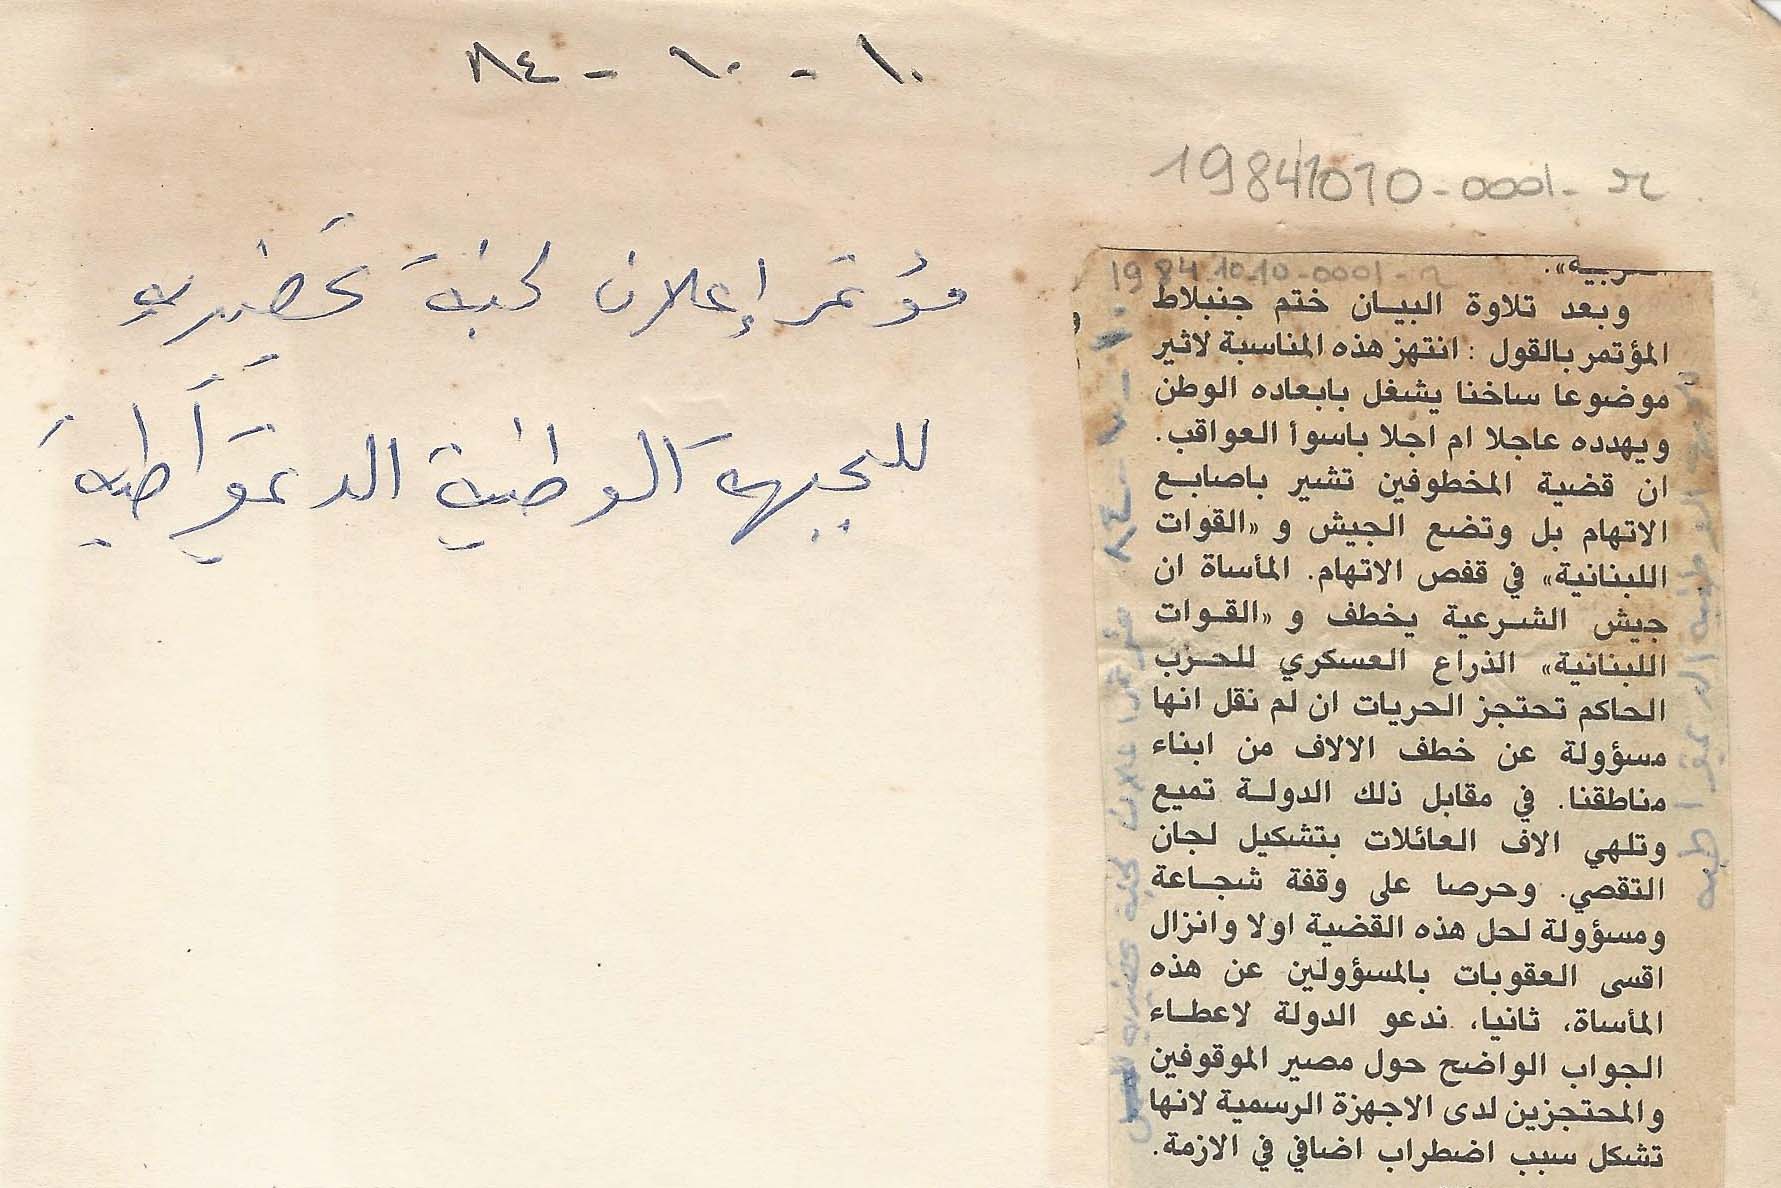 ١٠ - ١٠ - ٨٤
19841010-0001-
مؤتمر إعلان لجنة تحضيرية
للجبهة الوطنية الديمقراطية
19841010-0001-
وبعد تلاوة البيان ختم جنبلاط
المؤتمر بالقول : انتهز هذه المناسبة لاثير
موضوعا ساخنا يشغل بابعاده الوطن
ويهدده عاجلا ام اجلا باسوأ العواقب.
ان قضية المخطوفين تشير باصابع
الاتهام بل وتضع الجيش و «القوات
اللبنانية» في قفص الاتهام. المأساة ان
جيش الشرعية يخطف و «القوات
اللبنانية» الذراع العسكري للحزب
الحاكم تحتجز الحريات ان لم نقل انها
مسؤولة عن خطف الالاف من ابناء
مناطقنا. في مقابل ذلك الدولة تميع
وتلهي الاف العائلات بتشكيل لجان
التقصي. وحرصا على وقفة شجاعة
ومسؤولة لحل هذه القضية اولا وانزال
اقسى العقوبات بالمسؤولين عن هذه
المأساة، ثانيا، ندعو الدولة لاعطاء
الجواب الواضح حول مصير الموقوفين
والمحتجزين لدى الاجهزة الرسمية لانها
تشكل سبب اضطراب اضافي في الازمة.
١٠ - ١٠ - ٨٤ مؤتمر اعلان لجنة تحضيرية
الوطنية الديمقراطية